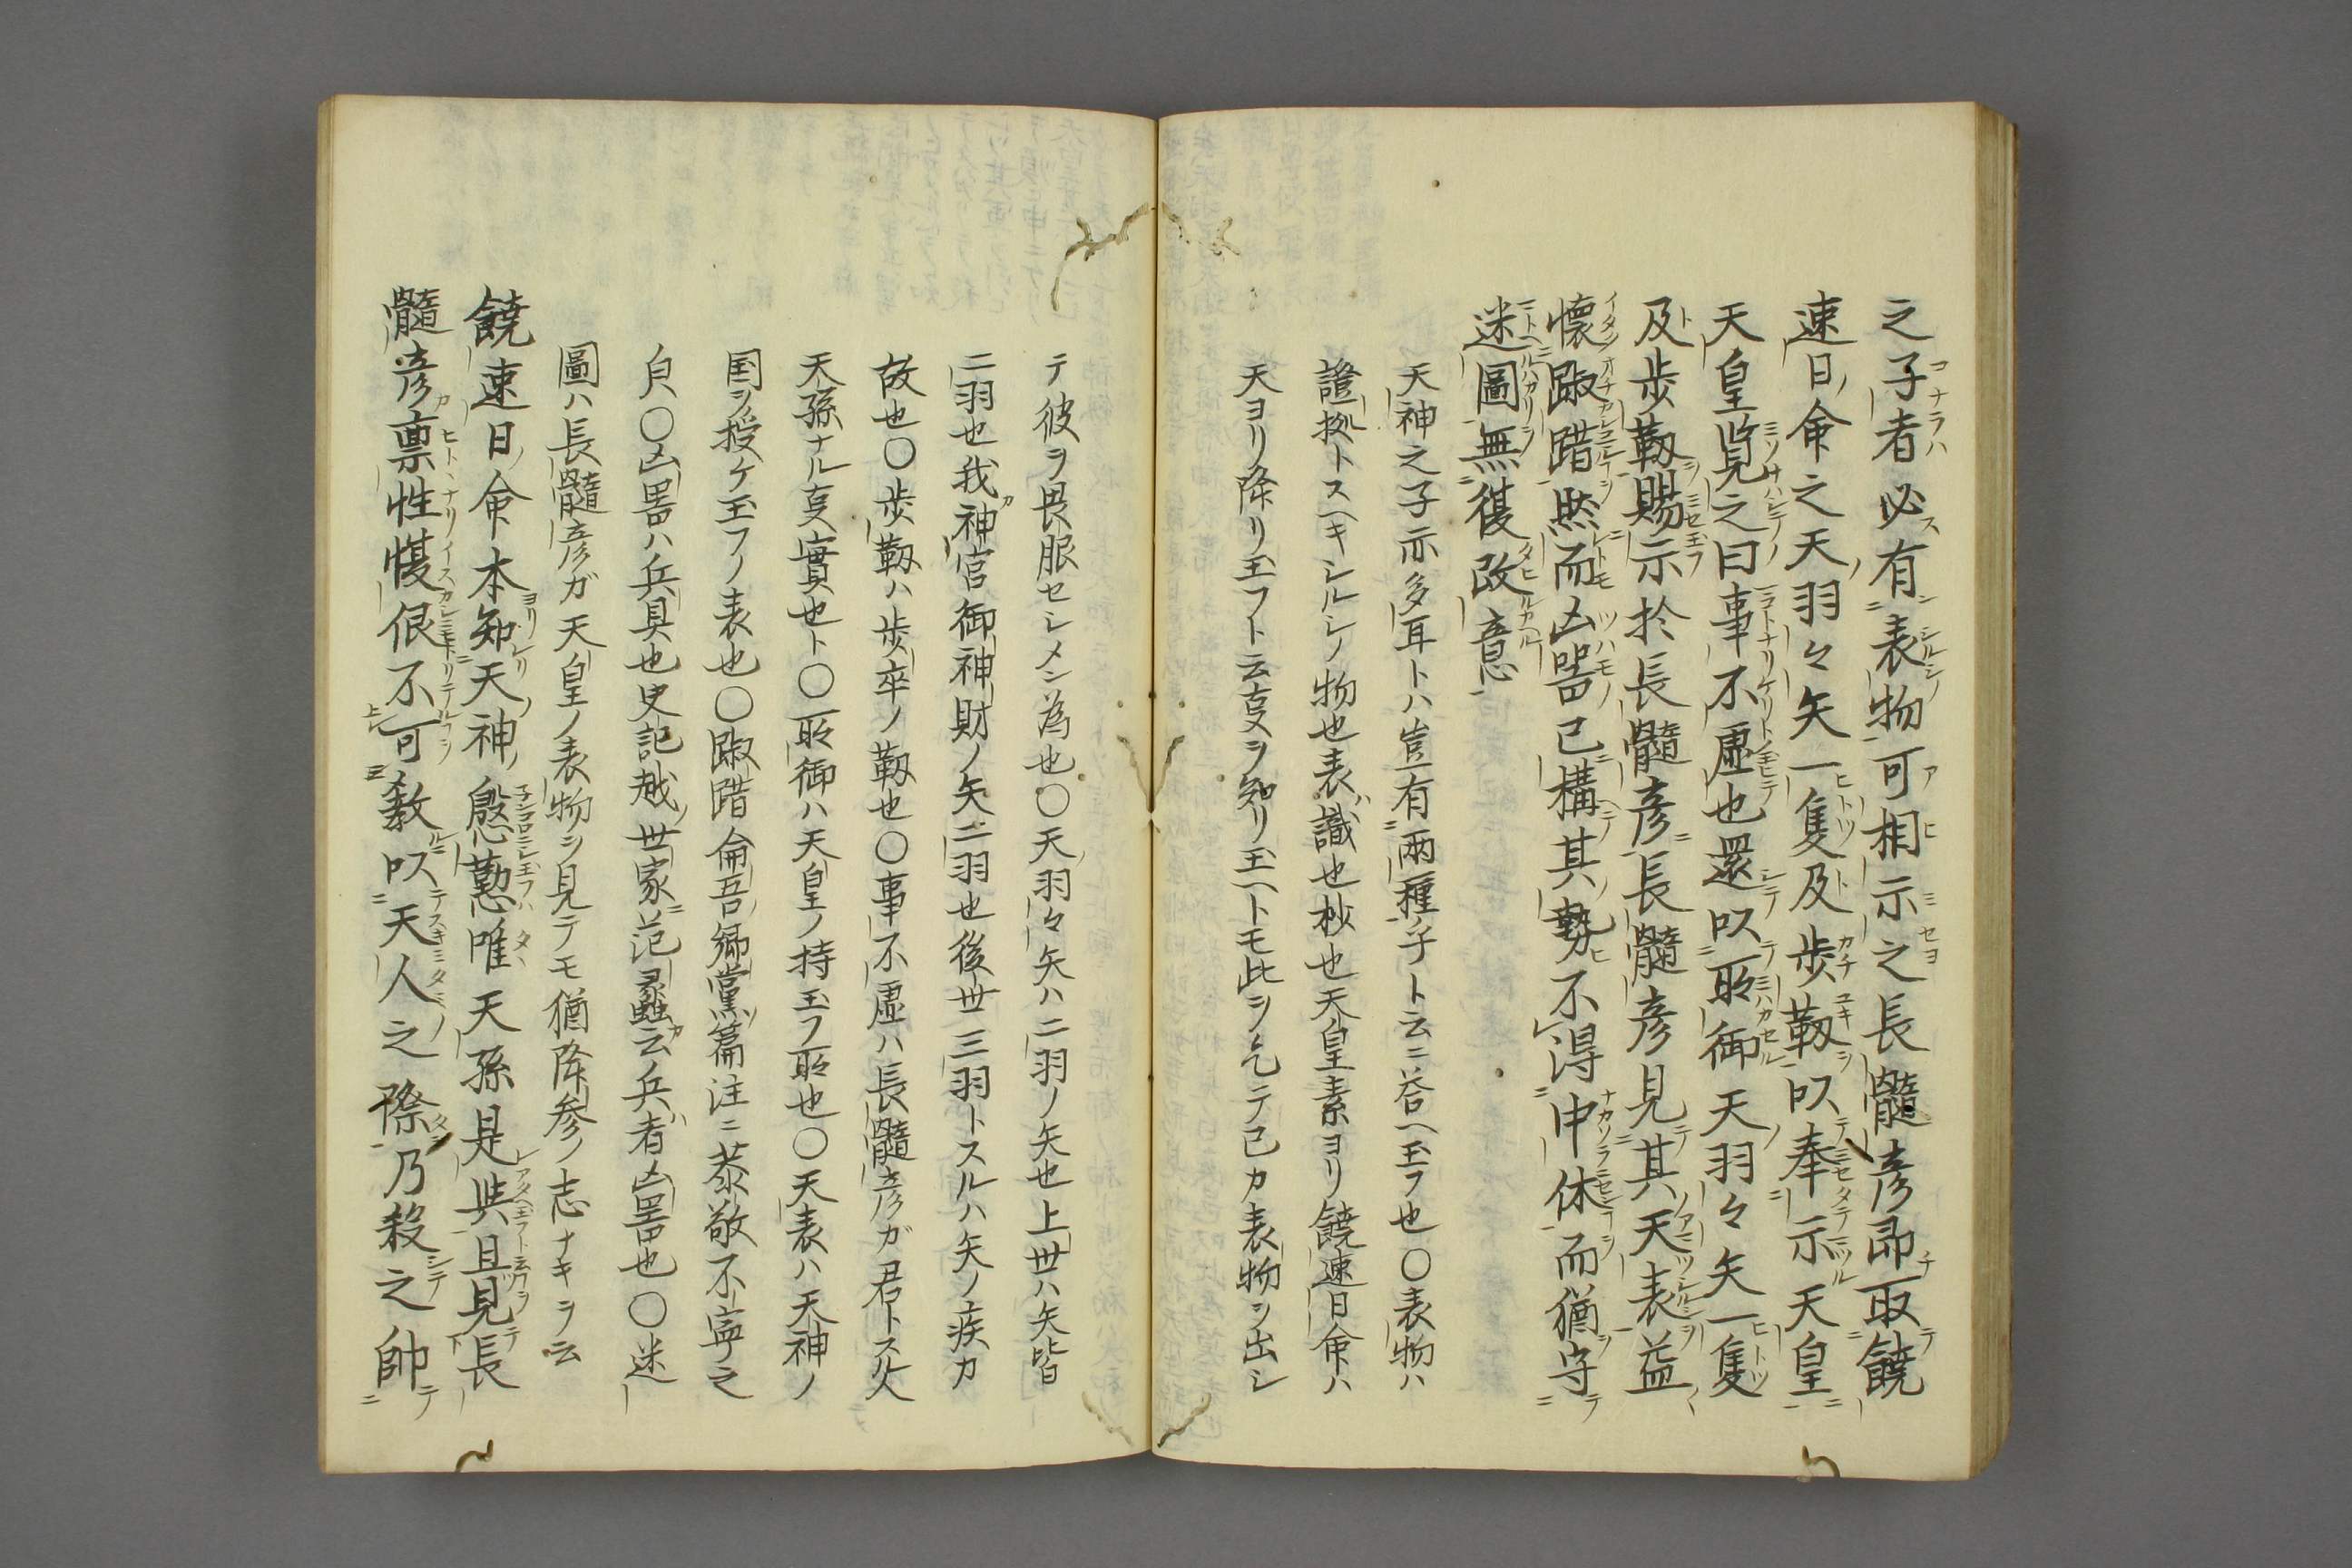 之子者必有表物可相示之長髓彦即取饒
速日命之天羽々矢一隻及歩靱以奉示天皇
天皇覧之曰事不虚也還以所御天羽々矢一隻
及歩靱賜示於長髓彦長髓彦見其天表益
懐踧踖然而凶器已構其勢不得中休而猶守
迷圖無復改意
天神之子亦多耳トハ豈有兩種子ト云ニ荅ヘ玉フ也〇表物ハ
證拠トスヘキシルシノ物也表ハ識也杪也天皇素ヨリ饒速日命ハ
天ヨリ降リ玉フト云叓ヲ知リ玉ヘトモ此ヲ乞テ己カ表物ヲ出シ
テ彼ヲ畏服セシメン為也〇天羽々矢ハ二羽ノ矢也上世ハ矢皆
二羽也我カ神宮御神財ノ矢二羽也後世三羽トスルハ矢ノ疾カ
故也〇歩靱ハ歩卒ノ靱也〇事不虚ハ長髓彦ガ君トス処
天孫ナル叓實也ト〇所御ハ天皇ノ持玉フ所也〇天表ハ天神ノ
国ヲ授ケ玉フノ表也〇踧踖侖吾郷黨ノ篇注ニ㳟敬不寧之
皃〇凶噐ハ兵具也史記越ノ世家ニ范蠡カ云兵者ハ凶噐也〇迷
圖ハ長髓彦ガ天皇ノ表物ヲ見テモ猶降参ノ志ナキヲ云
饒速日命本知天神慇懃唯天孫是與且見長
髓彦禀性愎佷不可教以天人之際乃殺之帥